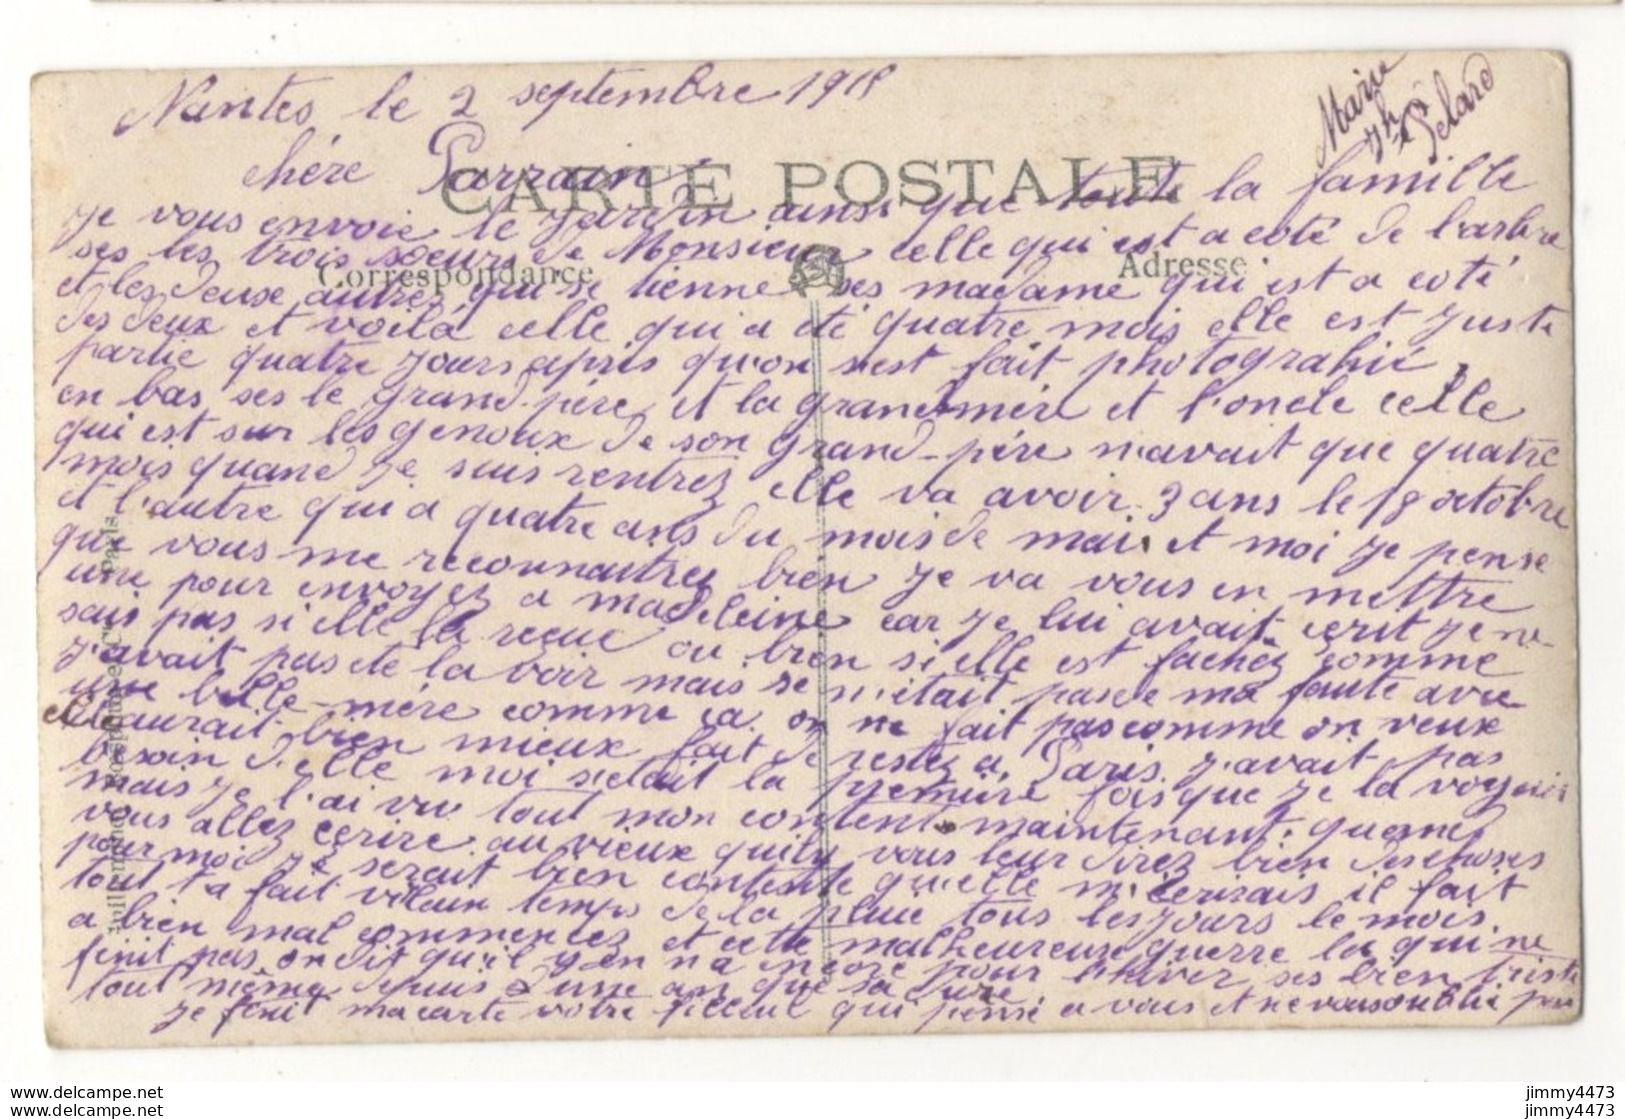 Nantes le 2 septembre 191
Marie
Pelard
chére Parrain
CARTE POSTALE
Correspondance
Adresse
je vous envoie le jardin ainsi que toute la famille
ses les trois soeurs de Monsieur celle qui est a coté de l'arbre
et les deuxe autrez qui se tienne ses madame qui est a coté
des deux et voilà celle qui a été quatre mois elle est juste
partie quatre jours apris qu'on s'est fait photograhié,
en bas ses le grand-pére et la grandmére et l'oncle celle
qui est sur les genoux de son grand-pére n'avait que quatre
mois quand je suis rentrez elle va avoir 3 ans le 18 octobre
et l'autre qui a quatre ans du mois de mai et moi je pense
que vous me reconnaitrez bien je va vous en mettre
une pour envoyez a madeleine car je lui avait ecrit je ne
sais pas si elle la reçue ou bien si elle est fachez comme
j'avait pas été la voir mais se n'était pas de ma faute avec
une belle-mére comme ça on ne fait pas comme on veux
aurait bien mieux fait de restez a Paris j'avait pas
besoin d'elle moi s'etait la premiére fois que je la voyais
mais je l'ai vu tout mon content maintenant. quand
vous allez ecrire au vieux quily vous leur direz bien des choses
pour moi je serait bien contente qu'elle m'ecrirais il fait
tout ta fait vilain temps de la pluie tous les jours le mois.
a bien mal commencez et cette malheureuse guerre la qui ne
finit pas on dit qu'il y en n'a encore pour l'hiver ses bien triste
tout même depuis d'une an que sa dure
je finit ma carte votre filleul qui pense a vous et ne vous oublie pas
Guilleminot, Boespflug et Cie Paris
jimmy4473
jimmy4473